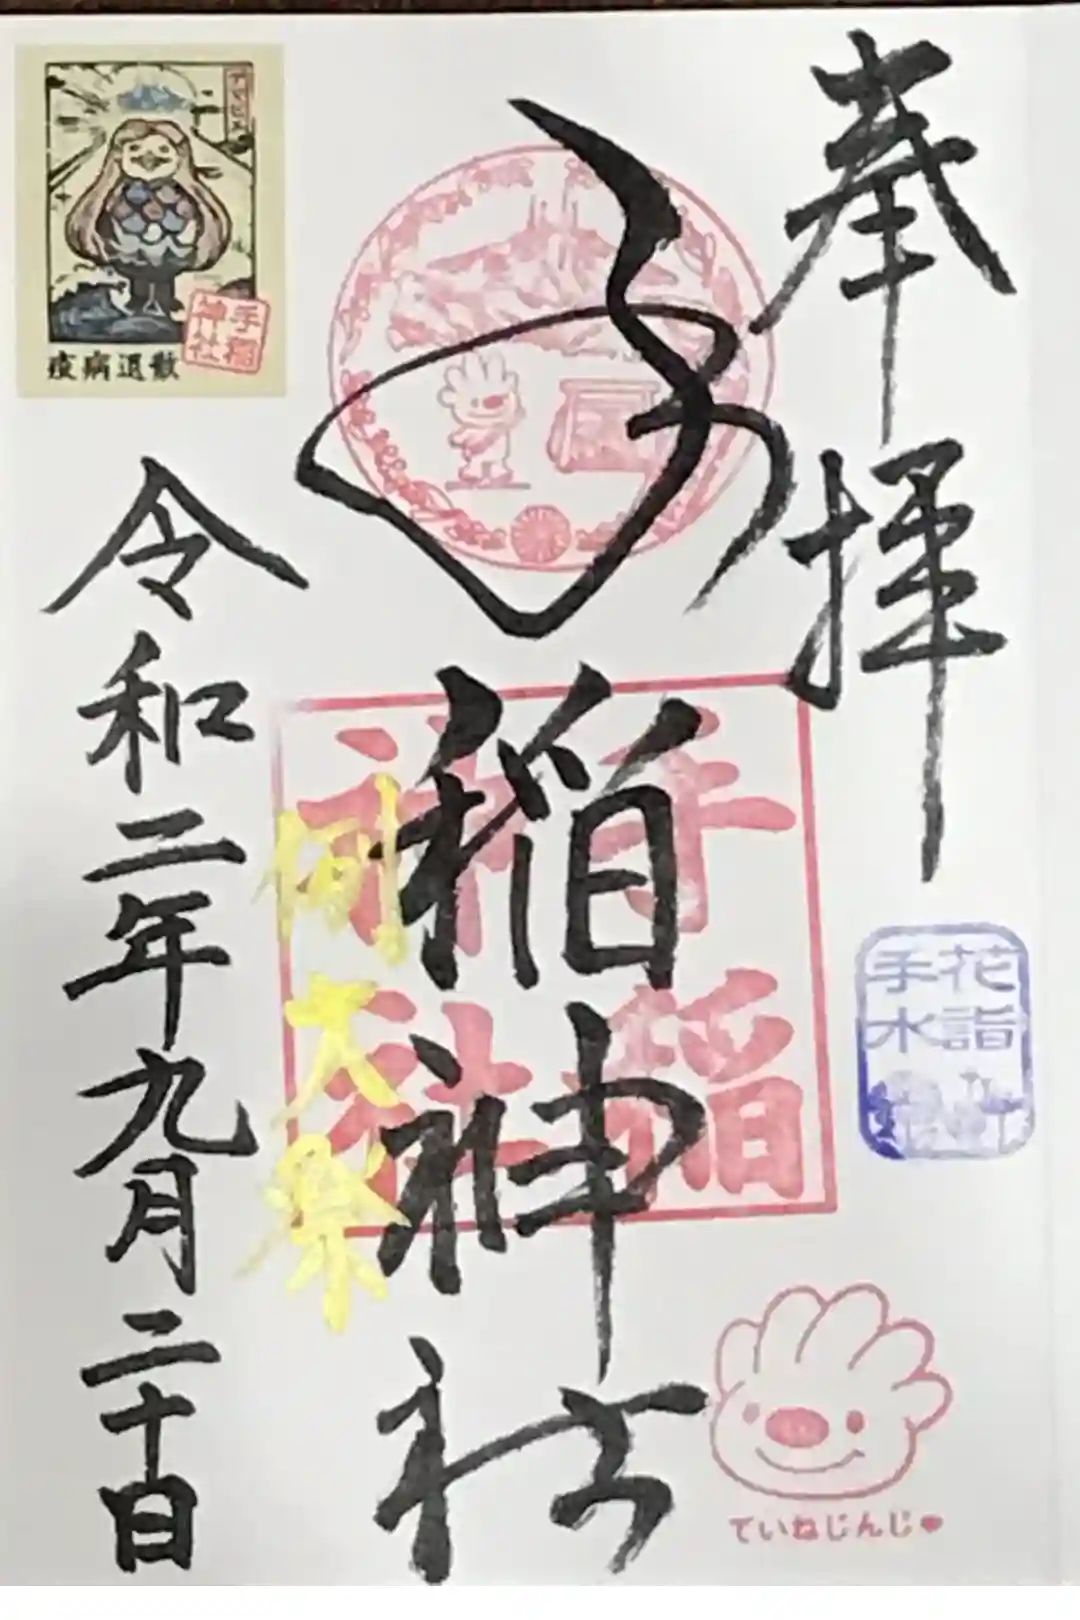 奉拝
手稲神社
手稲
神社
例大祭
令和二年九月二十日
アマビエ
手稲
神社
疫病退散
花詣
手水
ていねじんじ❤